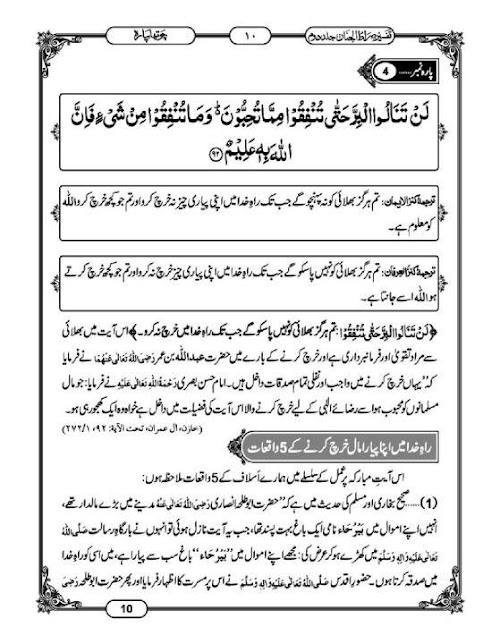 تفسیر صراط الجنان جلد دوم
۱۰
چوتھا پارہ
پارہ نمبر...... 4
لَنْ تَنَالُوا الْبِرَّ حَتّٰى تُنْفِقُوْا مِمَّا تُحِبُّوْنَ ﱟ وَ مَا تُنْفِقُوْا مِنْ شَیْءٍ فَاِنَّ
اللّٰهَ بِهٖ عَلِیْمٌ ﴿۹۲﴾
ترجمۂ کنزالایمان: تم ہرگز بھلائی کو نہ پہنچو گے جب تک راہِ خدا میں اپنی پیاری چیز نہ خرچ کرو اور تم جو کچھ خرچ کرو اللہ
کو معلوم ہے۔
ترجمۂ کنزالعرفان: تم ہرگز بھلائی کو نہیں پاسکو گے جب تک راہِ خدا میں اپنی پیاری چیز خرچ نہ کرو اور تم جو کچھ خرچ کرتے
ہو اللہ اسے جانتا ہے۔
﴿لَنْ تَنَالُوا الْبِرَّ حَتّٰى تُنْفِقُوْا: تم ہرگز بھلائی کو نہیں پاسکو گے جب تک راہِ خدا میں خرچ نہ کرو۔﴾ اس آیت میں بھلائی
سے مراد تقویٰ اور فرمانبرداری ہے اور خرچ کرنے کے بارے میں حضرت عبداللہ بن عمر رَضِیَ اللہُ تَعَالٰی عَنْہُمَا نے فرمایا
کہ ’’یہاں خرچ کرنے میں واجب اور نفلی تمام صدقات داخل ہیں۔ امام حسن بصری رَحْمَۃُ اللہِ تَعَالٰی عَلَیْہِ نے فرمایا: جو مال
مسلمانوں کو محبوب ہو اسے رضائے الٰہی کے لیے خرچ کرنے والا اس آیت کی فضیلت میں داخل ہے خواہ وہ ایک کھجور ہی ہو۔
(خازن، اٰل عمران، تحت الآیۃ: ۹۲، ۱/۲۷۲)
راہِ خدا میں اپنا پیارا مال خرچ کرنے کے 5 واقعات
اس آیتِ مبارکہ پر عمل کے سلسلے میں ہمارے اَسلاف کے 5 واقعات ملاحظہ ہوں:
(1)...... صحیح بخاری اور مسلم کی حدیث میں ہے کہ ’’حضرت ابو طلحہ انصاری رَضِیَ اللہُ تَعَالٰی عَنْہُ مدینے میں بڑے مالدار تھے،
انہیں اپنے اموال میں بَیْرُحَاء نامی ایک باغ بہت پسند تھا، جب یہ آیت نازل ہوئی تو انہوں نے بارگاہِ رسالت صَلَّی اللہُ
تَعَالٰی عَلَیْہِ وَاٰلِہٖ وَسَلَّمَ میں کھڑے ہو کر عرض کی: مجھے اپنے اموال میں ’’بَیْرُحَاء‘‘ باغ سب سے پیارا ہے، میں اسی کو راہِ خدا
میں صدقہ کرتا ہوں۔ حضورِ اقدس صَلَّی اللہُ تَعَالٰی عَلَیْہِ وَاٰلِہٖ وَسَلَّمَ نے اس پر مسرت کا اظہار فرمایا اور پھر حضرت ابو طلحہ رَضِیَ
10